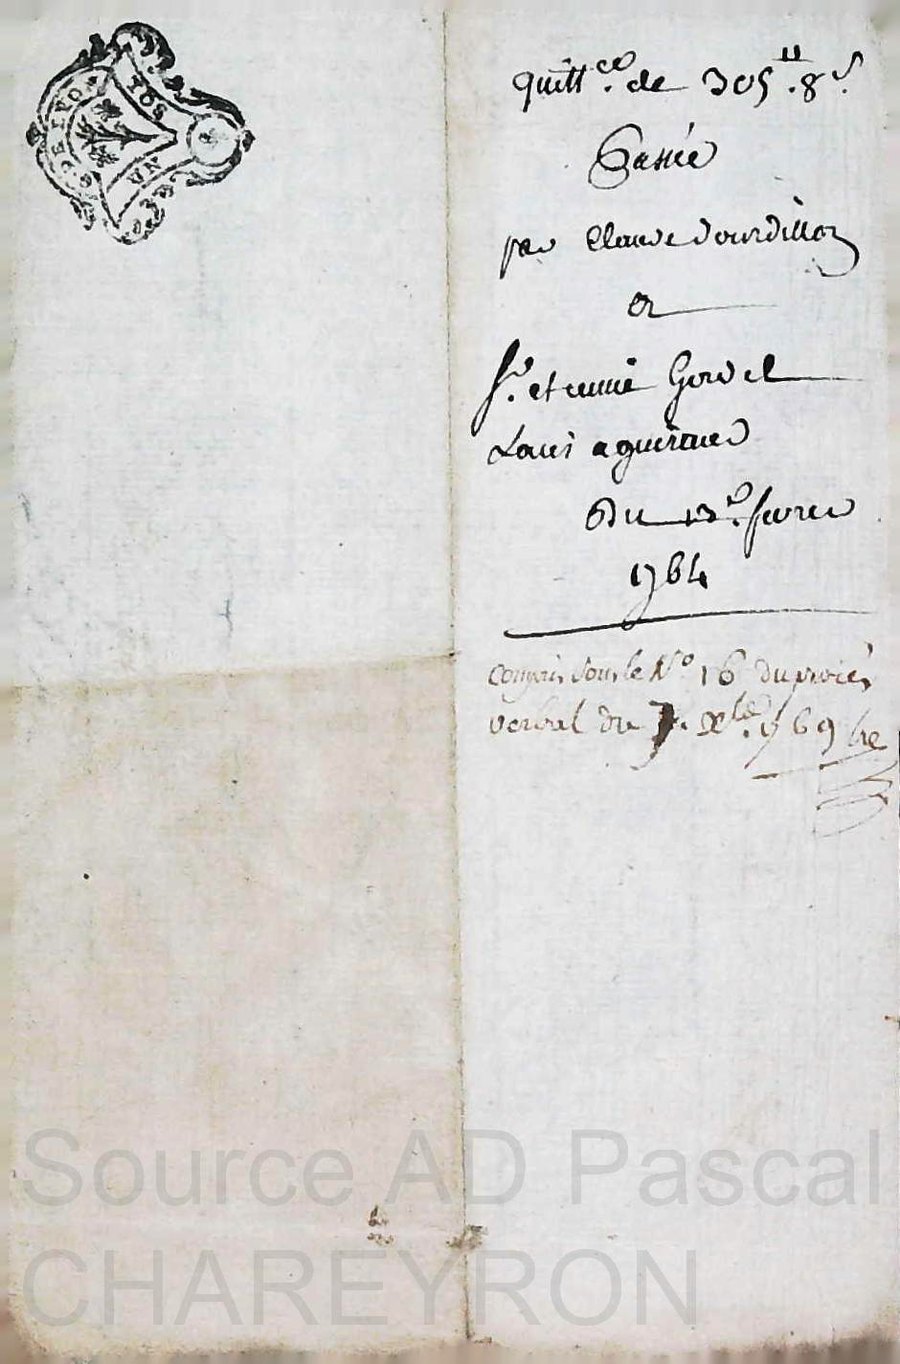 DE LYO
UN SOL
quitt.ce de 305.ll 8 s.
Passée
par Claude dourdillon
a
Sr. etienne Gordel
Louis aguiraud
Du 13.e fevrier
1764
Compris sous le No 16 du procès
verbal du 7. Xbre. 1769
Source AD Pascal
CHAREYRON